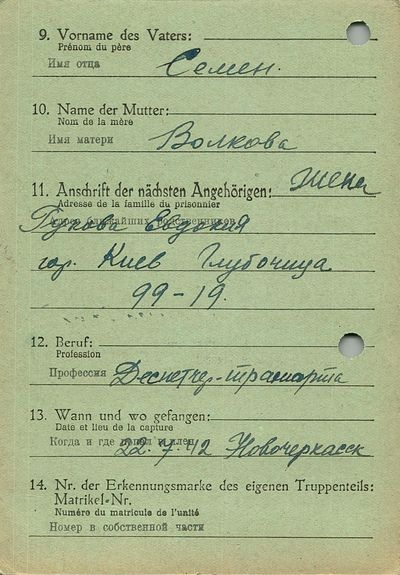 9. Vorname des Vaters:
Prénom du père
Имя отца Семен.
10. Name der Mutter:
Nom de la mère
Имя матери Волкова
11. Anschrift der nächsten Angehörigen: жена
Adresse de la famille du prisonnier
Адрес ближайших родственников
Гукова Евдокия
гор. Киев Глубочица
99-19.
12. Beruf:
Profession
Профессия Деспетчер-транспорта
13. Wann und wo gefangen:
Date et lieu de la capture
Когда и где попал в плен
22.7.42 Новочеркасск
14. Nr. der Erkennungsmarke des eigenen Truppenteils:
Matrikel-Nr.
Numéro du matricule de l'unité
Номер в собственной части